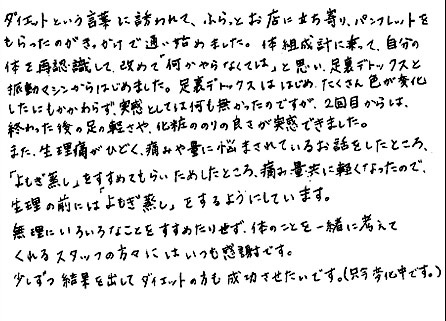 ダイエットという言葉に誘われて、ふらっとお店に立ち寄り、パンフレットを
もらったのがきっかけで通い始めました。体組成計に乗って、自分の
体を再認識して、改めて「何かやらなくては」と思い、足裏デトックスと
振動マシンからはじめました。足裏デトックスははじめ、たくさん色が変化
したにもかかわらず、実感としては何も無かったのですが、2回目からは、
終わった後の足の軽さや、化粧ののりの良さが実感できました。
また、生理痛がひどく、痛みや量に悩まされているお話をしたところ、
「よもぎ蒸し」をすすめてもらいためしたところ、痛み量共に軽くなったので、
生理の前には「よもぎ蒸し」をするようにしています。
無理にいろいろなことをすすめたりせず、体のことを一緒に考えて
くれるスタッフの方々にはいつも感謝です。
少しずつ結果を出してダイエットの方も成功させたいです。(只今劣化中です。)